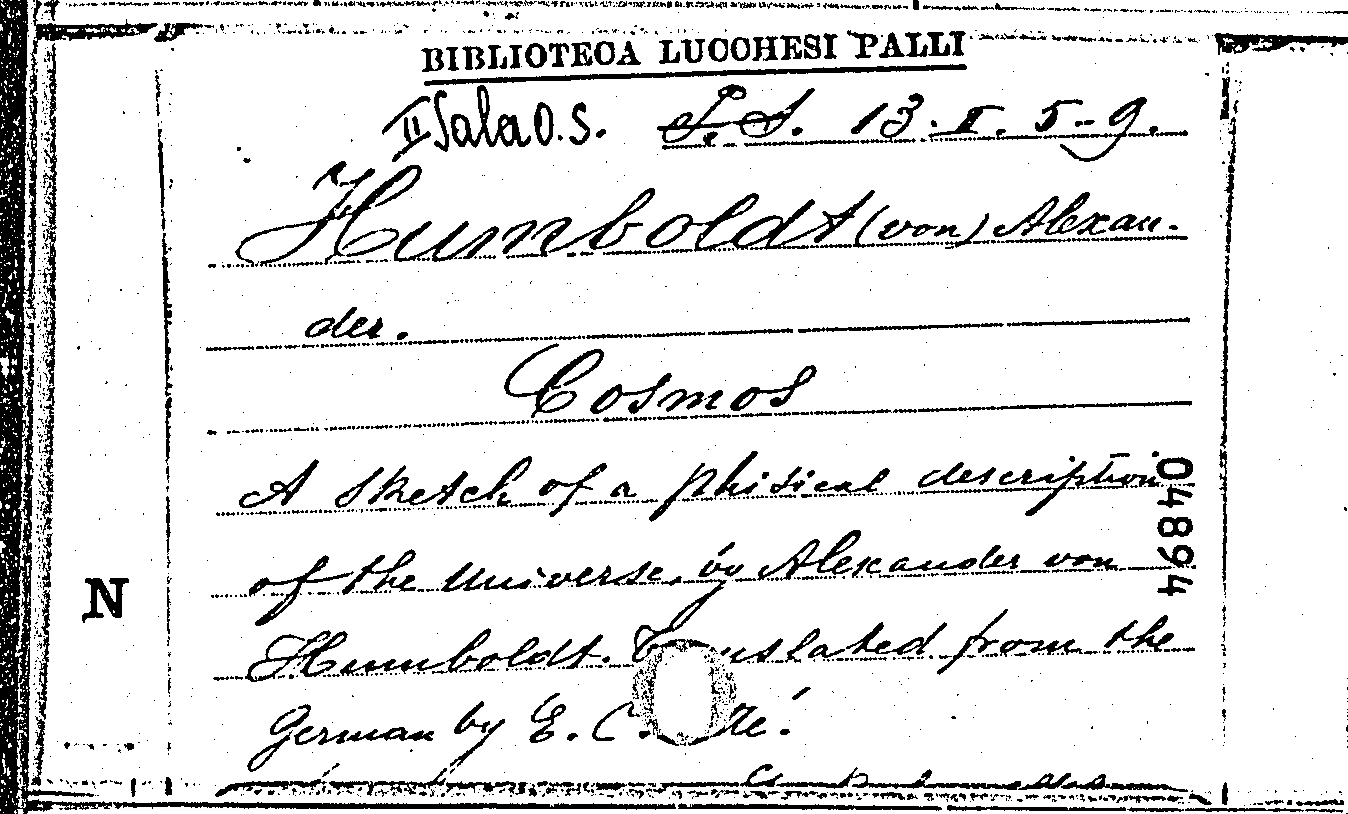 BIBLIOTECA LUCCHESI PALLI
II Sala O.S. P.S. 13. I. 5-9.
Humboldt (von) Alexan-
der.
Cosmos
A sketch of a phisical description
of the universe, by Alexander von
Humboldt. Translated from the
German by E. C.
04894
N